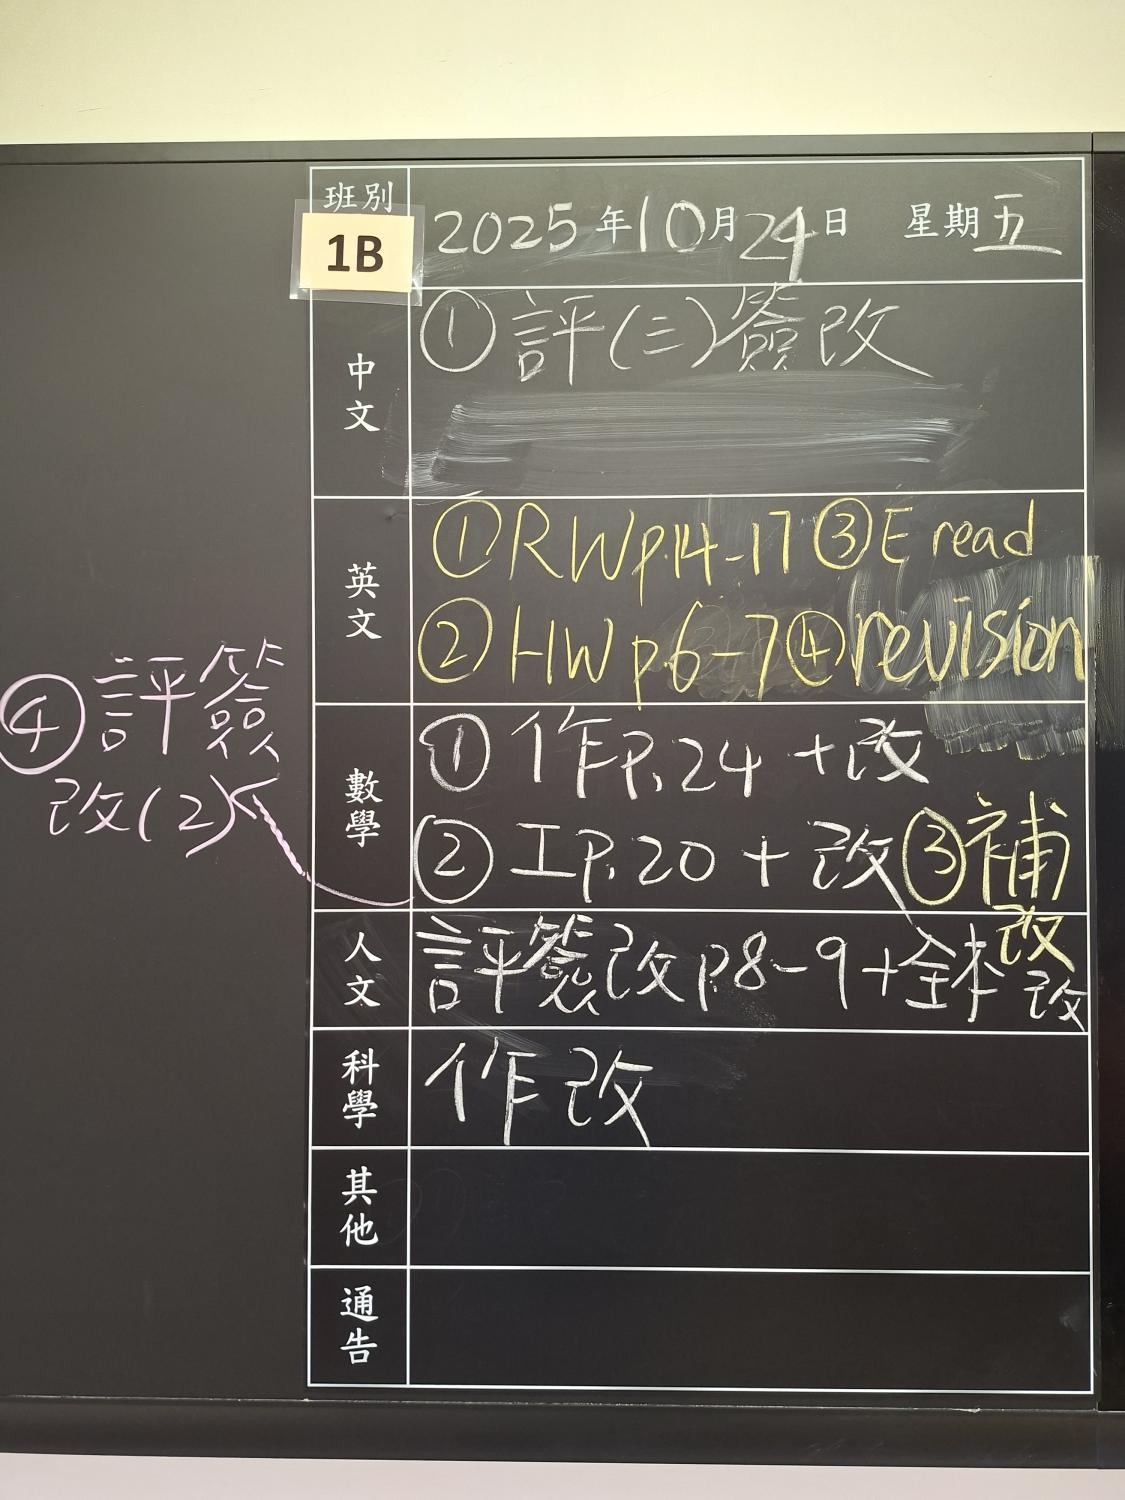 班別
1B
2025年10月24日 星期五
中文
①評(三)簽改
英文
①RWp.14-17 ③E read
②HW p.6-7 ④revision
數學
①作P.24 +改
②IP.20 + 改 ③補改
④評簽
改(2)
人文
評簽改p8-9+全本改
科學
作改
其他
通告